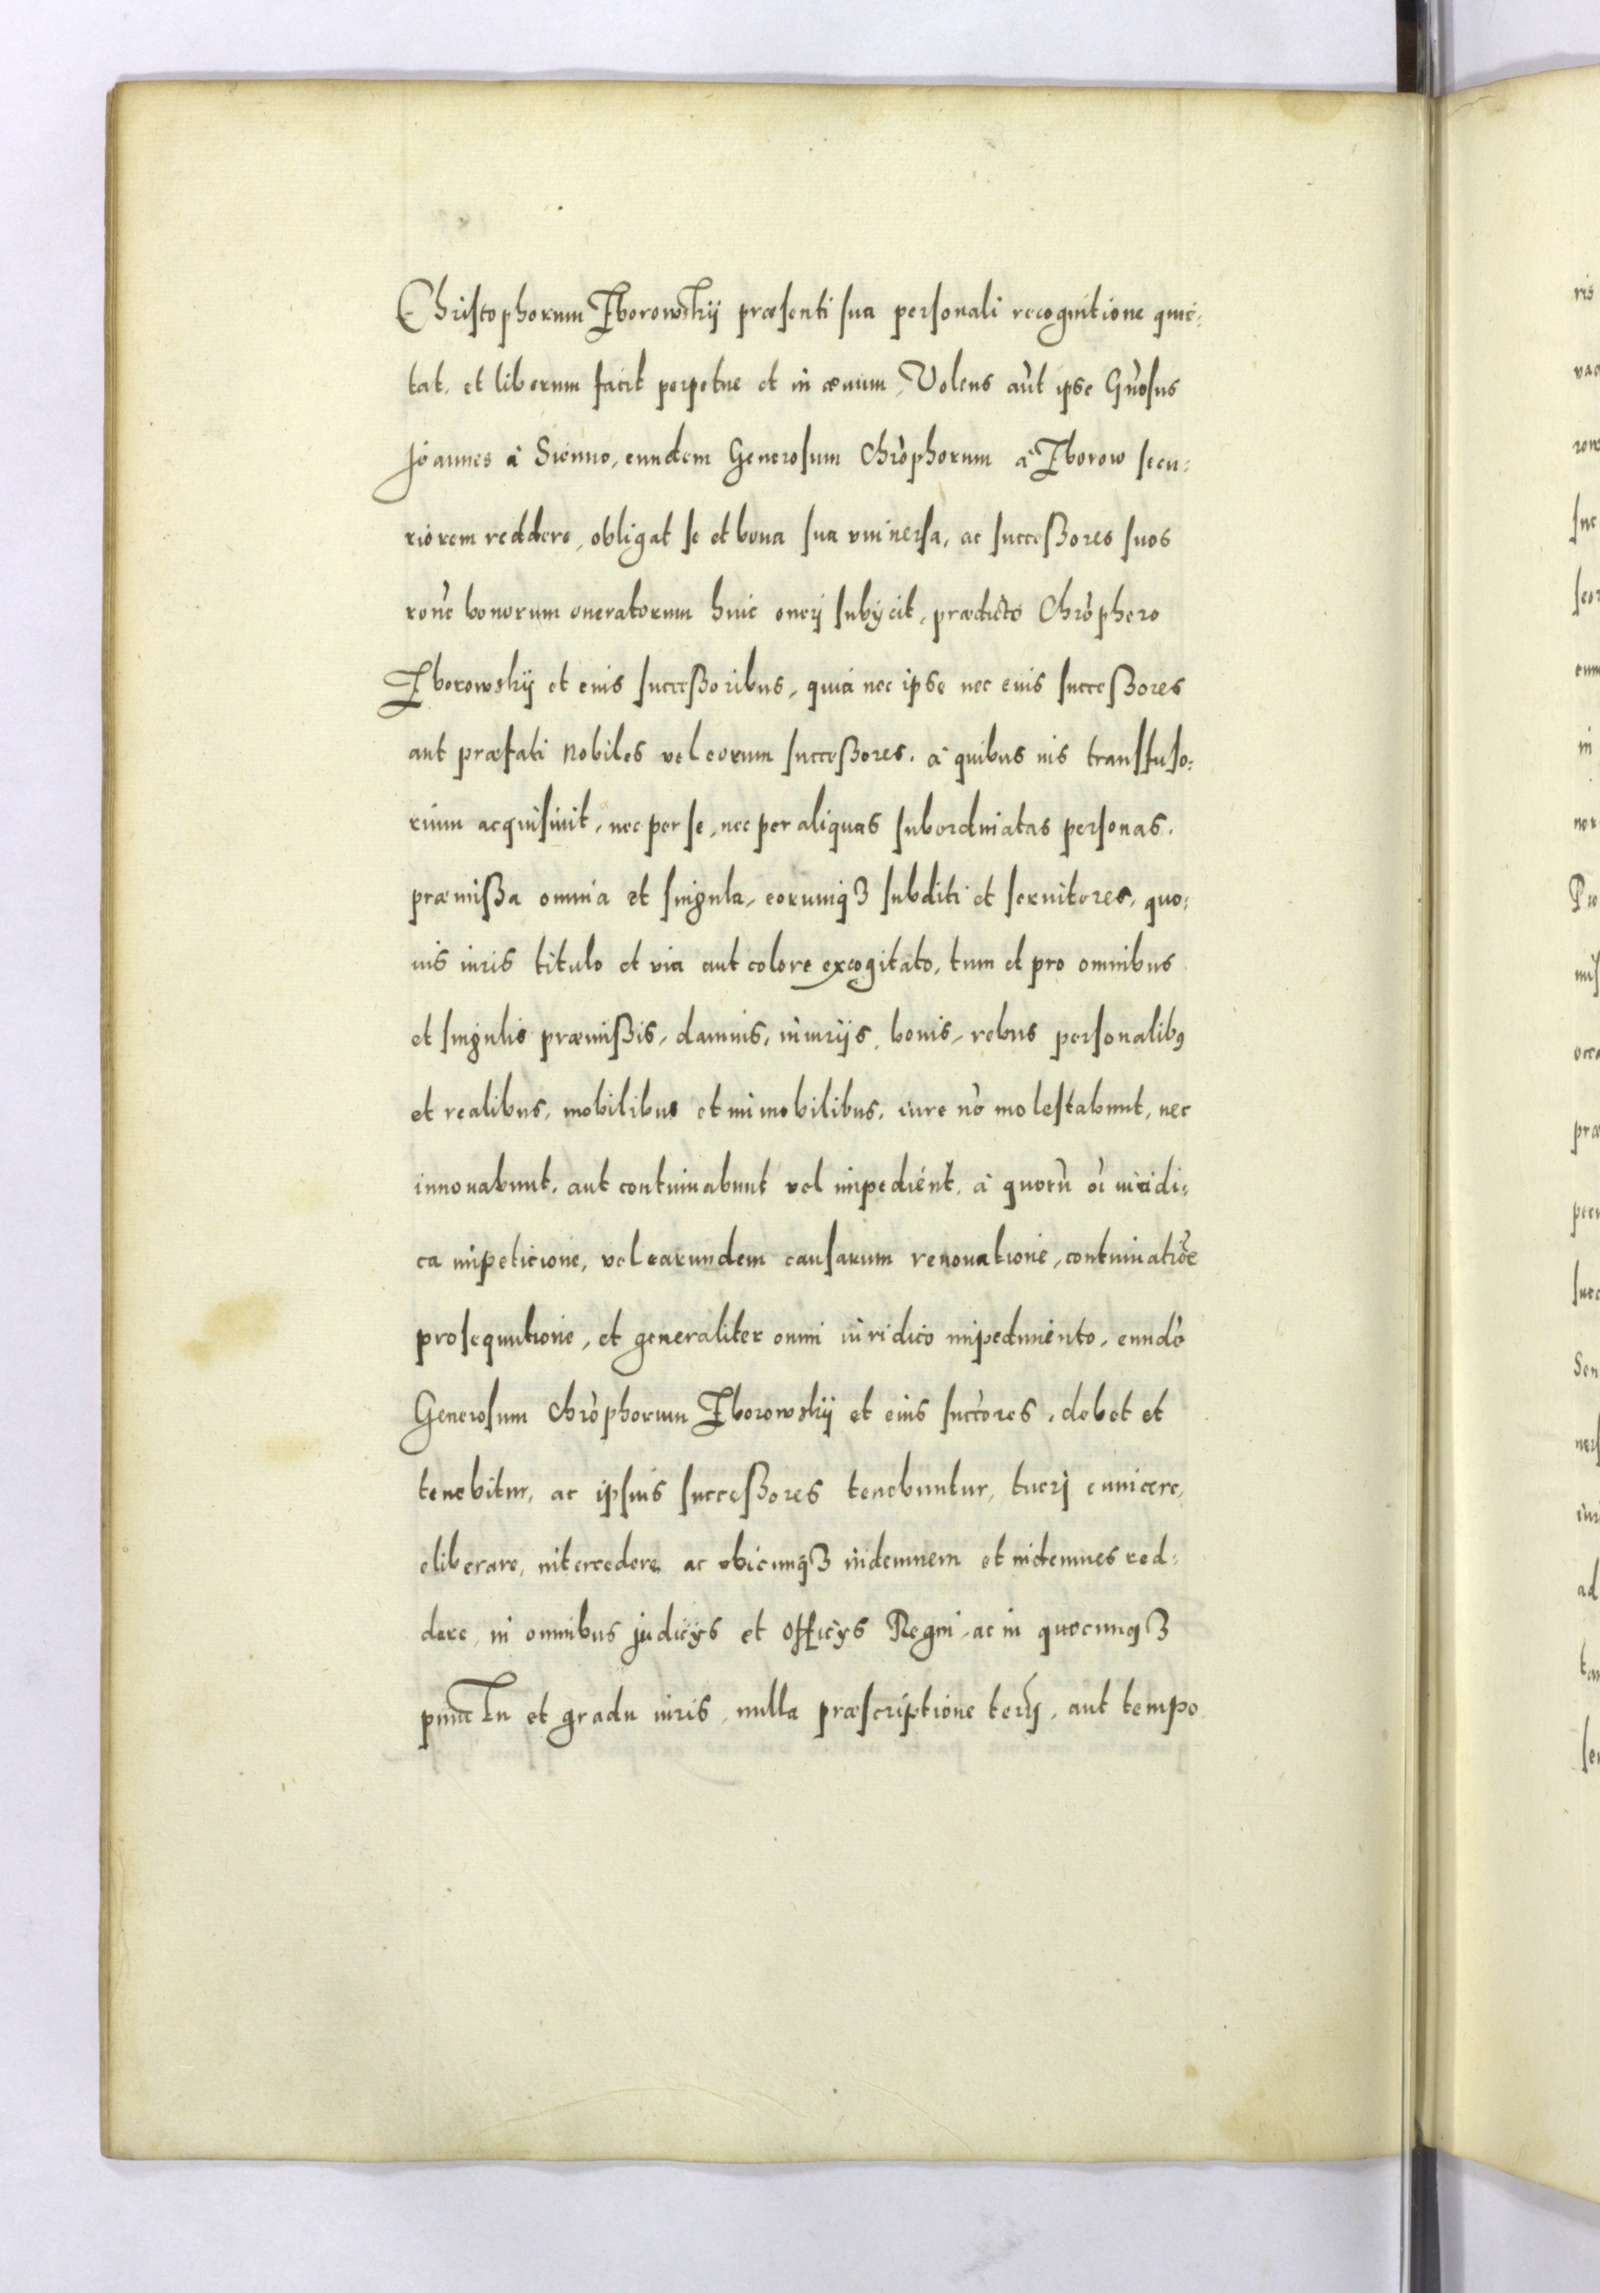 Christophorum Zborowskÿ præsenti sua personali recognitione quie:
tat, et liberum facit perpetue et in æuum, Volens aut̃ ipse Gnõsus
Joannes à Sienno, eundem Generosum Chrõphorum à Zborow secu:
riorem reddere, obligat se et bona sua vniuersa, ac succeßores suos
ronẽ bonorum oneratorum huic onerj subÿcit, prædicto Chrõphoro
Zborowskÿ et eius succeßoribus, quia nec ipse nec eius succeßores
aut præfati Nobiles vel eorum succeßores, à quibus ius transfuso:
rium acquisiuit, nec per se, nec per aliquas subordinatas personas,
præmißa omnia et singula, eorumq₃ subditi et seruitores, quo:
uis iuris titulo et via aut colore excogitato, tum et pro omnibus
et singulis præmißis, damnis, iniurÿs, bonis, rebus personalibꝰ
et realibus, mobilibus et immobilibus, iure nõ molestabunt, nec
innouabunt, aut continuabunt vel impedient, à quorũ oĩ iuridi:
ca impeticione, vel earundem causarum renouatione, continuatiõe
prosequutione, et generaliter omni iuridico impedimento, eundẽ
Generosum Chrõphorum Zborowskÿ et eius succõres, debet et
tenebitur, ac ipsius succeßores tenebuntur, tuerj euincere,
eliberare, intercedere ac vbicunq₃ indemnem et indemnes red:
dere, in omnibus judicÿs et officÿs Regni, ac in quocunq₃
punctu et gradu iuris, nulla præscriptione terrÿ, aut tempo